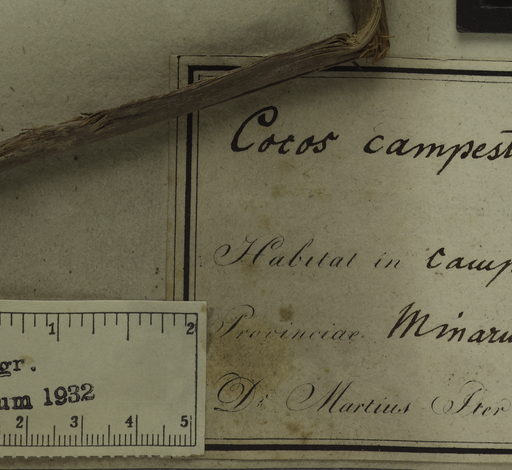 Cocos campest
Habitat in camp
Provinciae Minaru
Dr Martius Iter
1 2
gr.
um 1932
2 3 4 5